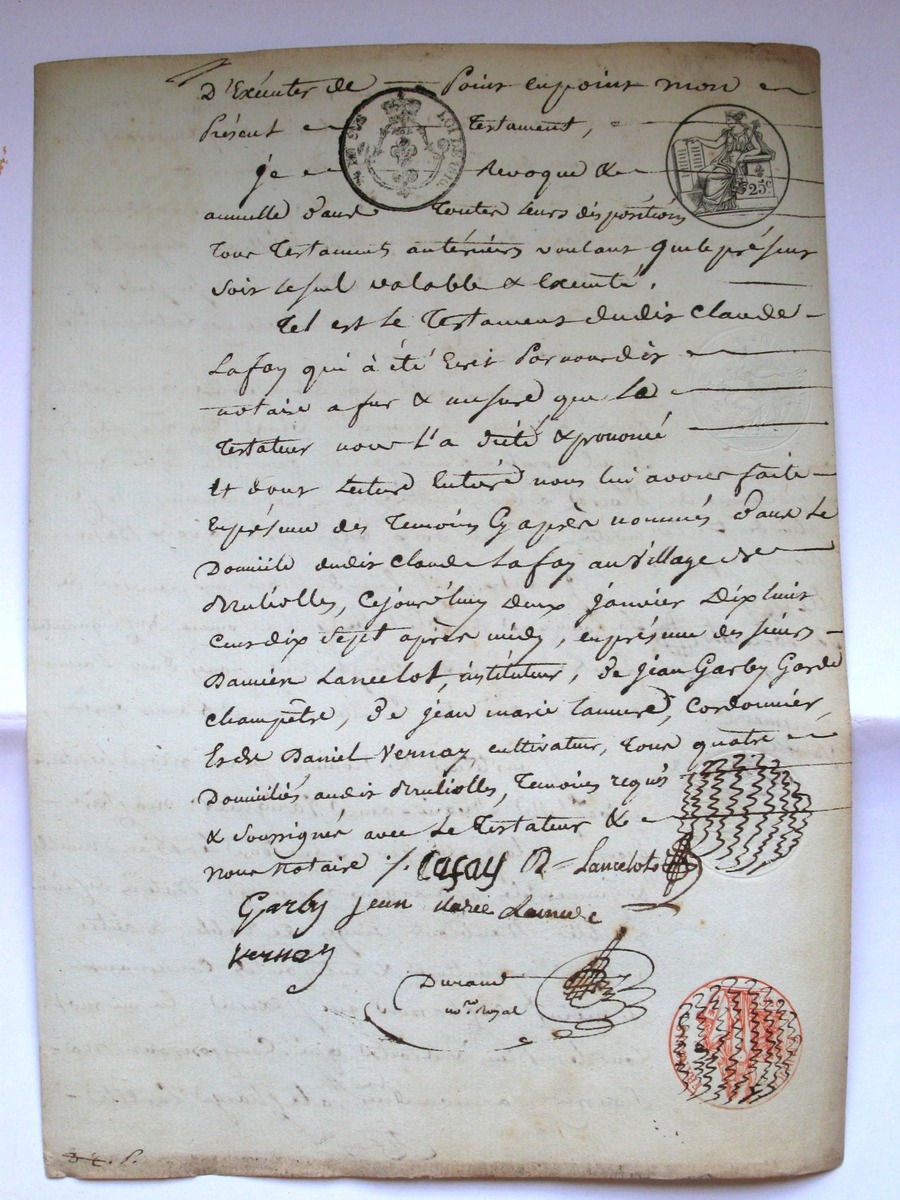 D'Exécuter de Point en point mon
Présent Testament,
je Revoque &
annulle dans Toutes leurs dispositions
Tous Testaments antérieurs voulant que le présent
soit le seul valable & Executé.
Tel est le Testament dudit Claude
Lafay qui à été Ecrit Par nous dit
notaire a fur & mesure que Le
Testateur nous l'a dicté & prononcé
Et dont Lecture Entière nous lui avons faite
En présence des Temoins Cy après nommés dans Le
Domicile dudit Claude Lafay au Village de
Brulliolles, Cejourd'huy deux janvier Dix huit
Cent dix Sept après midy, en présence des sieurs
Damien Lancelot, instituteur, de jean Garby Garde
champêtre, de jean marie Cordonnier,
Et de Daniel Vernay, cultivateur, Tous quatre
Domiciliés audit Temoins requis
& Soussignés avec Le Testateur &
Nous Notaire ./. Lafay D Lancelot
Garby jean Marie
Vernay
Durand
no.re Royal
25c